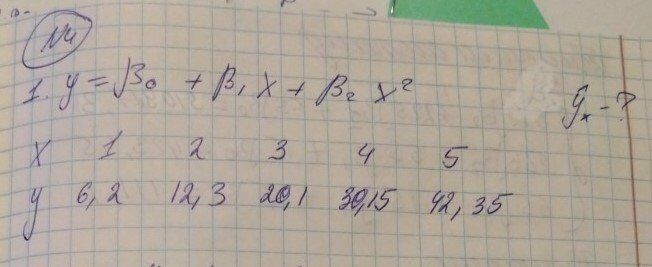 №4
1. y = β₀ + β₁ x + β₂ x² ŷₓ - ?
x 1 2 3 4 5
y 6,2 12,3 20,1 30,15 42,35